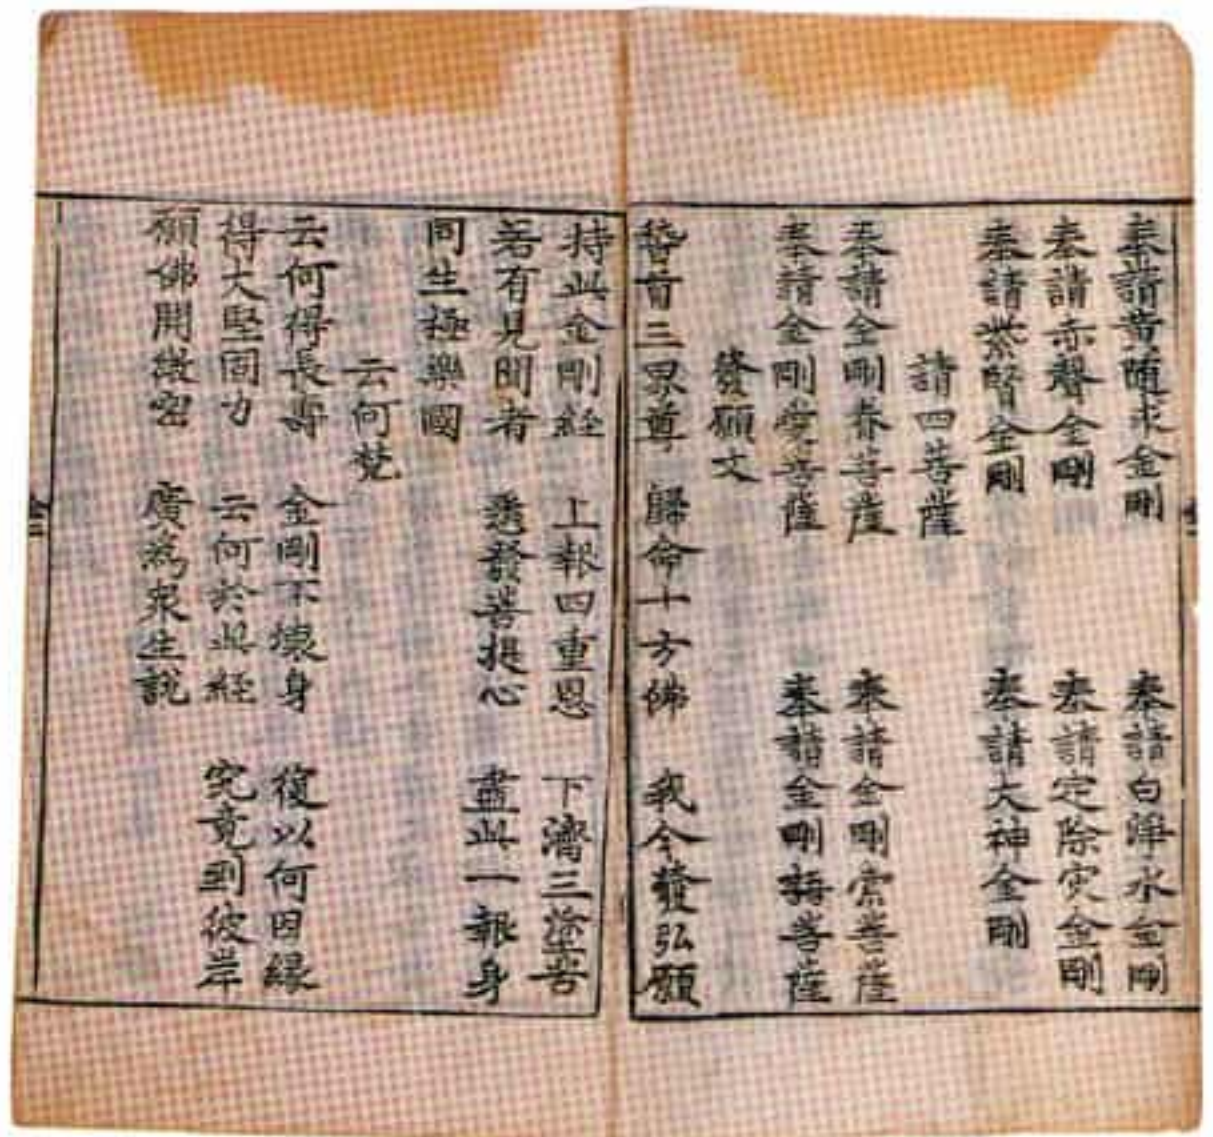 奉請黃隨求金剛　奉請白淨水金剛
奉請赤聲金剛　奉請定除灾金剛
奉請紫賢金剛　奉請大神金剛
請四菩薩
奉請金剛眷菩薩　奉請金剛索菩薩
奉請金剛愛菩薩　奉請金剛語菩薩
發願文
稽首三界尊　歸命十方佛　我今發弘願
持此金剛經　上報四重恩　下濟三塗苦
若有見聞者　悉發菩提心　盡此一報身
同生極樂國
云何梵
云何得長壽　金剛不壞身　復以何因緣
得大堅固力　云何於此經　究竟到彼岸
願佛開微密　廣為眾生說